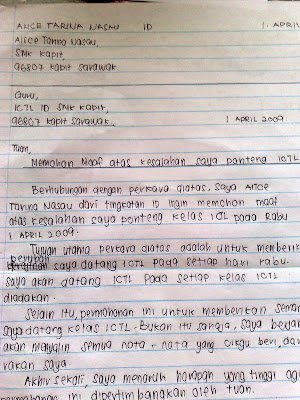 ALICE TARINA NASAU ID 1. APRIL
Alice Tarina Nasau,
SMK Kapit,
96807 Kapit Sarawak.
Guru,
ICTL ID SMK Kapit,
96807 Kapit Sarawak. 1 APRIL 2009
Tuan,
Memohon Maaf atas kesalahan saya ponteng ICTL
Berhubungan dengan perkara diatas, saya Alice
Tarina Nasau dari tingkatan ID ingin memohon maaf
atas kesalahan saya ponteng kelas ICTL pada Rabu
1 APRIL 2009.
Tujuan utama perkara diatas adalah untuk memberik
saya datang ICTL pada setiap hari rabu.
saya akan datang ICTL pada setiap kelas ICTL
diadakan.
Selain itu, permohonan ini untuk memberikan seman
saya datang kelas ICTL. Bukan itu sahaja, saya berjan
akan menyalin semua nota-nota yang cikgu beri dar
rakan saya
Akhir sekali, saya menaruh harapan yang tinggi aga
permohonan ini dipertimbangkan oleh tuan.